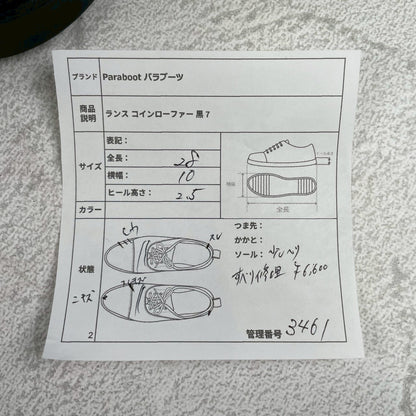 ブランド Paraboot パラブーツ
商品説明 ランス コインローファー 黒 7
サイズ
表記：
全長： 28
横幅： 10
ヒール高さ： 2.5
ヒール高さ
横幅
全長
カラー
状態
スレ
つま先：
かかと：
ソール： 少しヘリ
すべり修理 ¥6,600
2
管理番号 3461